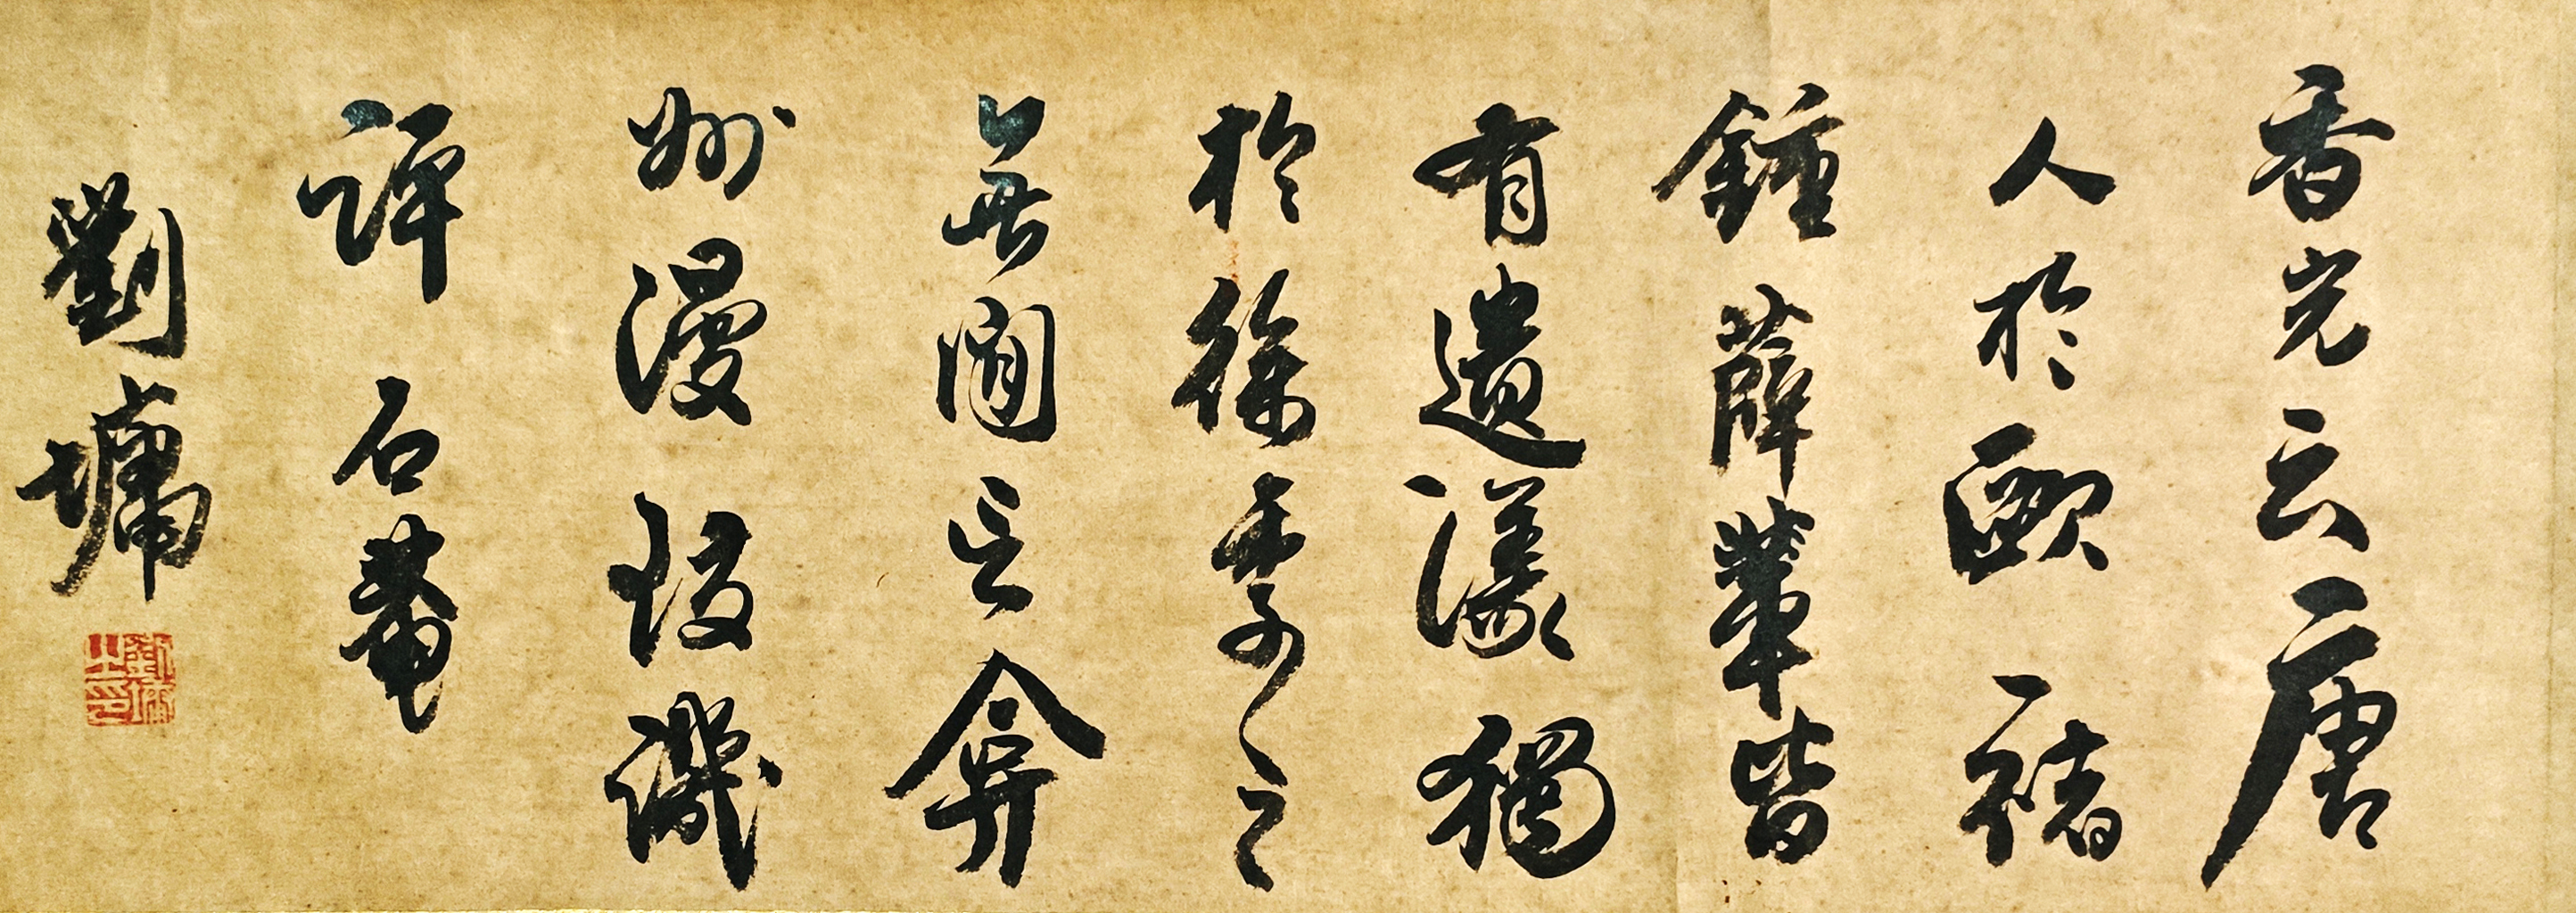 香光云唐
人於歐褚
鍾薛輩皆
有遺議獨
於徐季之
無間言弇
州漫譏
評 石菴
劉墉
劉墉之印